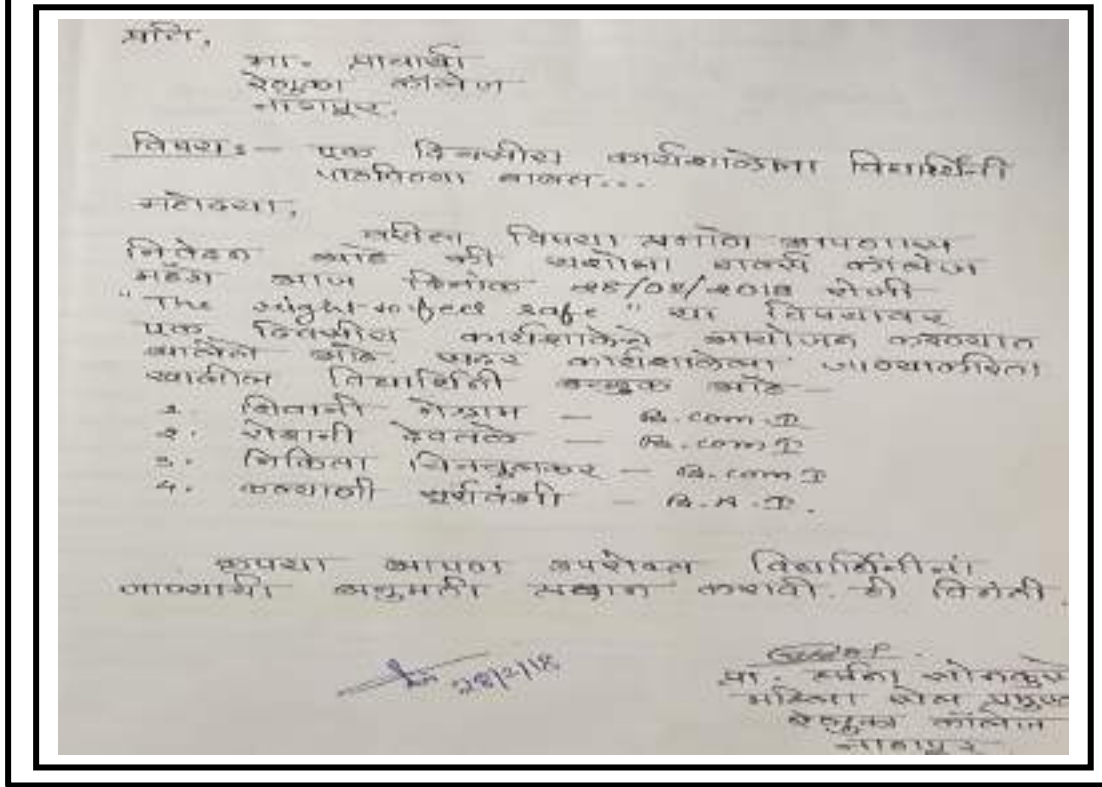 प्रति,
मा. प्राचार्या
रेणुका कॉलेज
नागपूर.
विषय:- एक दिवसीय कार्यशाळेला विद्यार्थिनी
पाठवितना बाबत...
महोदया,
वरील विषया प्रमाणे आपणास
निवेदन आहे की यशोदा गर्ल्स कॉलेज
मध्ये आज दिनांक २८/०२/२०१८ रोजी
"The right to feel safe" या विषयावर
एक दिवसीय कार्यशाळेचे आयोजन करण्यात
आलेले आहे. सदर कार्यशाळेला जाण्याकरिता
खालील विद्यार्थिनी इच्छुक आहे -
१. शिवानी मेश्राम - B.com.I
२. रोशनी देवतळे - B.com I
३. निकिता चिनचुलकर - B.com I
४. कल्याणी सूर्यवंशी - B.A.I.
कृपया आपण उपरोक्त विद्यार्थिनींना
जाण्याची अनुमती प्रदान करावी. ही विनंती.
28/2/18
प्रा.
महिला सेल प्रमुख
रेणुका कॉलेज
नागपूर